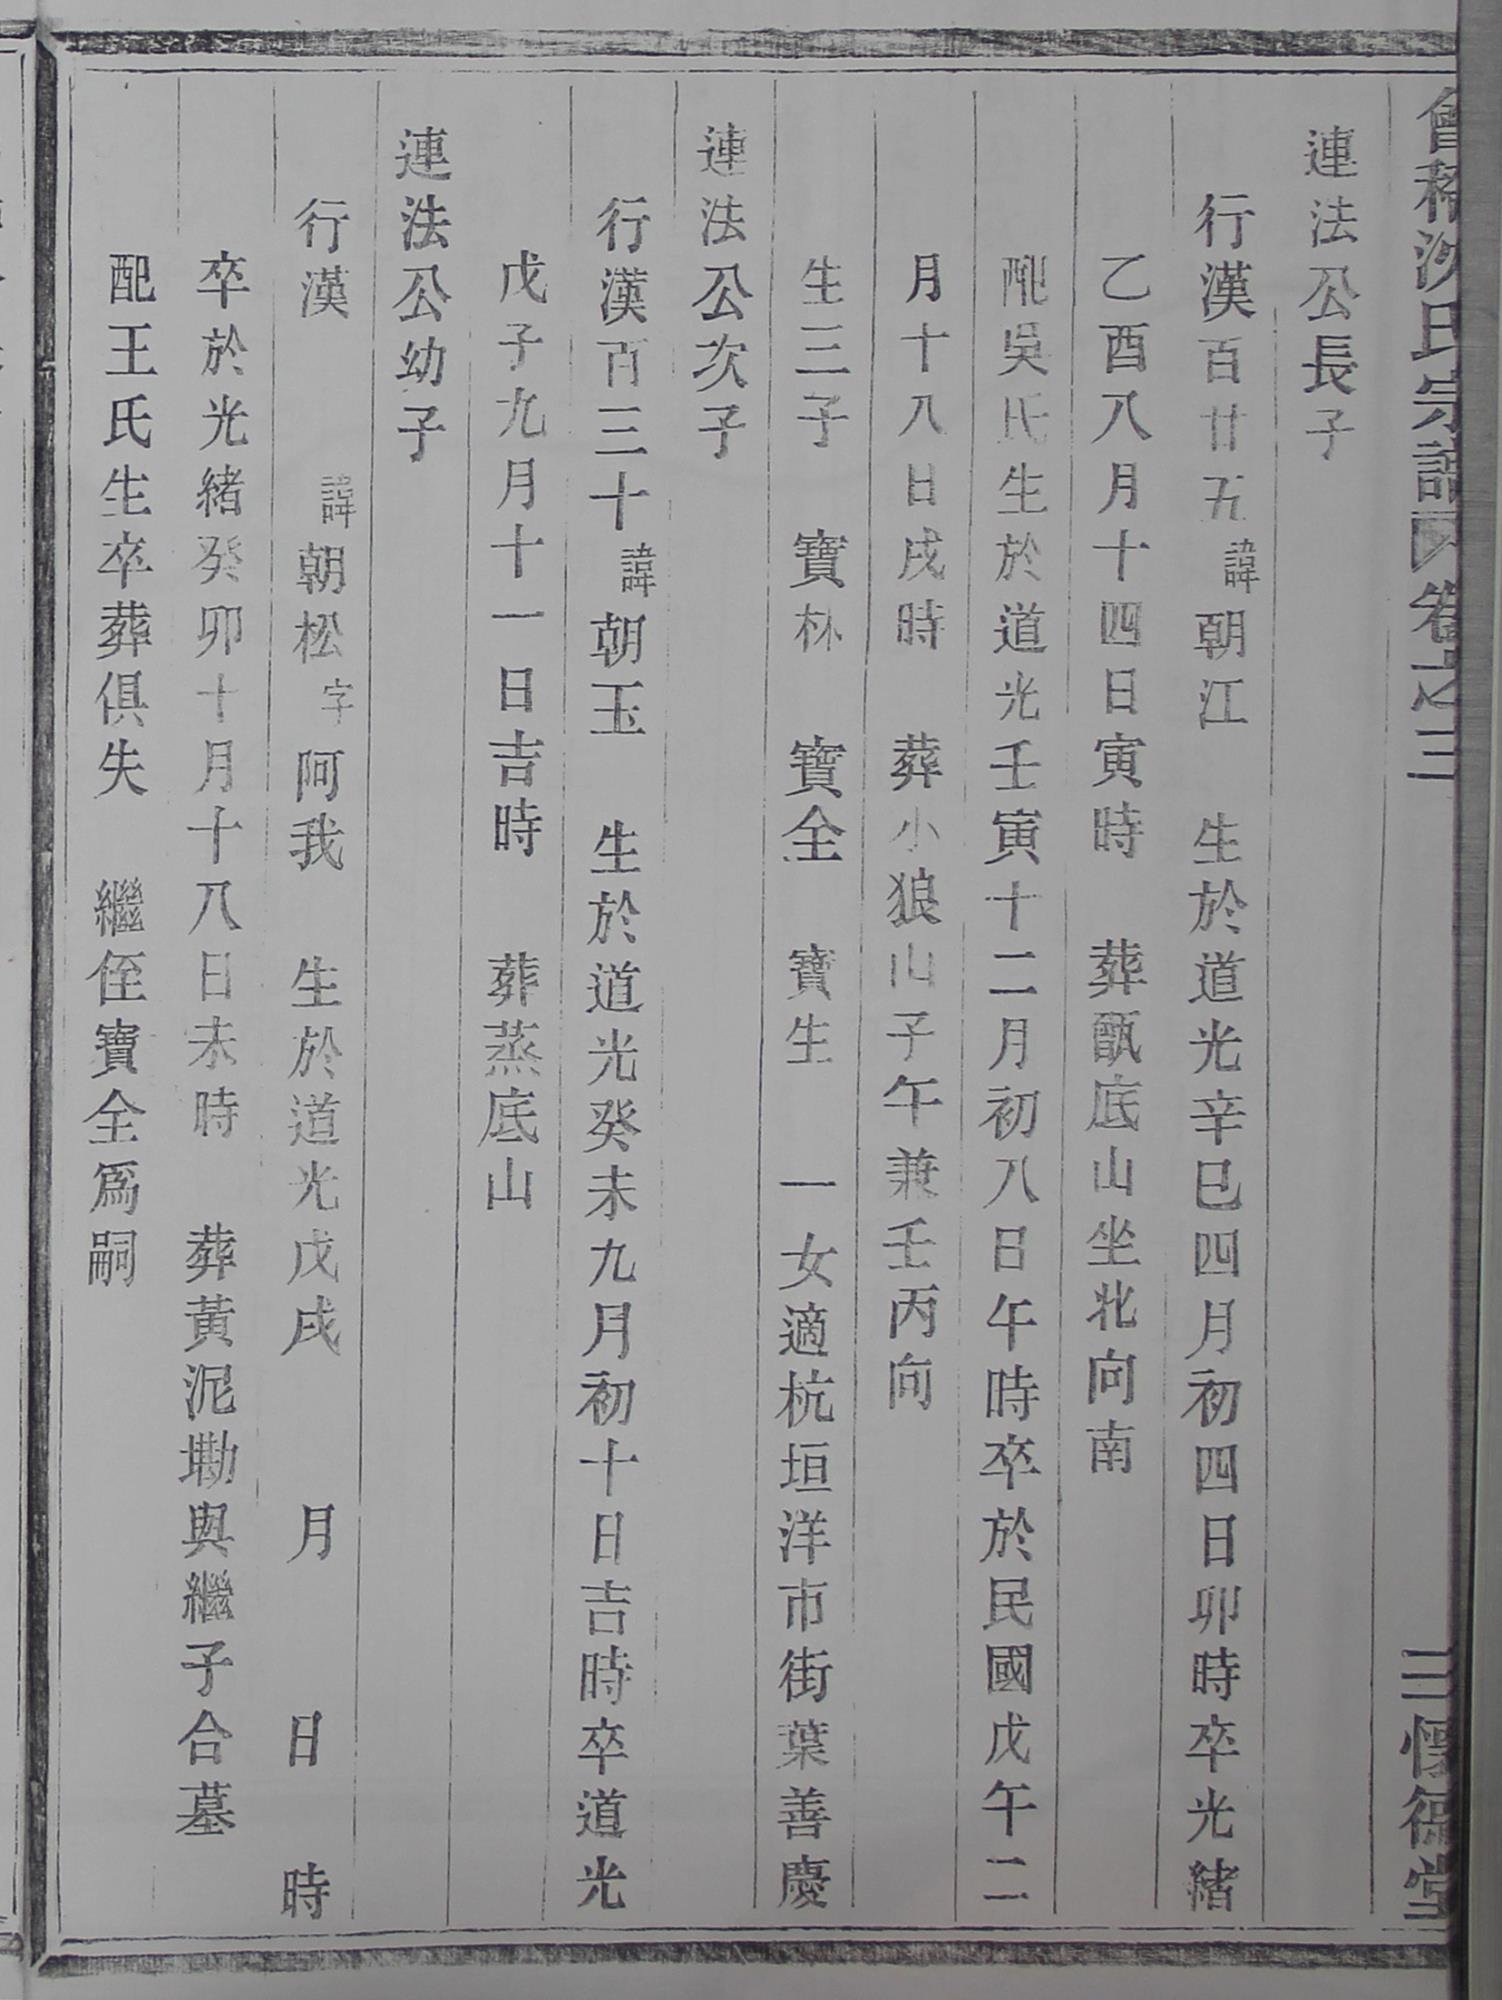 會稽沈氏宗譜 卷之三 三 懷德堂
連法公長子
行漢百廿五諱朝江 生於道光辛巳四月初四日卯時卒光緒
乙酉八月十四日寅時 葬甑底山坐北向南
配吳氏生於道光壬寅十二月初八日午時卒於民國戊午二
月十八日戌時 葬小狼山子午兼壬丙向
生三子 寶林 寶全 寶生 一女適杭垣洋市街葉善慶
連法公次子
行漢百三十諱朝玉 生於道光癸未九月初十日吉時卒道光
戊子九月十一日吉時 葬蒸底山
連法公幼子
行漢 諱朝松字阿我 生於道光戊戌 月 日 時
卒於光緒癸卯十月十八日未時 葬黃泥墈與繼子合墓
配王氏生卒葬俱失 繼侄寶全爲嗣